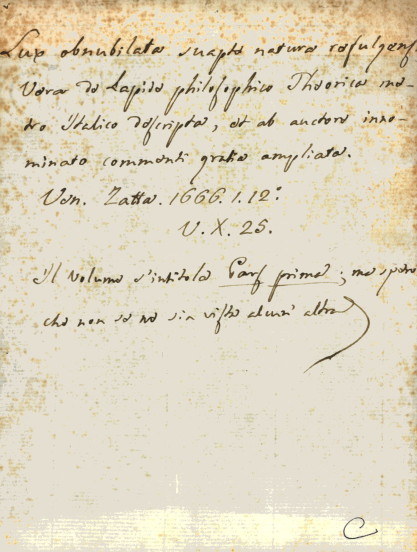 Lux obnubilata suapte natura refulgens
Vera de Lapide philosophico Theorica me-
tro Italico descripta, et ab auctore inno-
minato commenti gratia ampliata.
Ven. Zatta. 1666. 1. 12.°
V. X. 25.
Il volume s'intitola Pars prima; ma pare
che non se ne sia vista alcun' altra
C